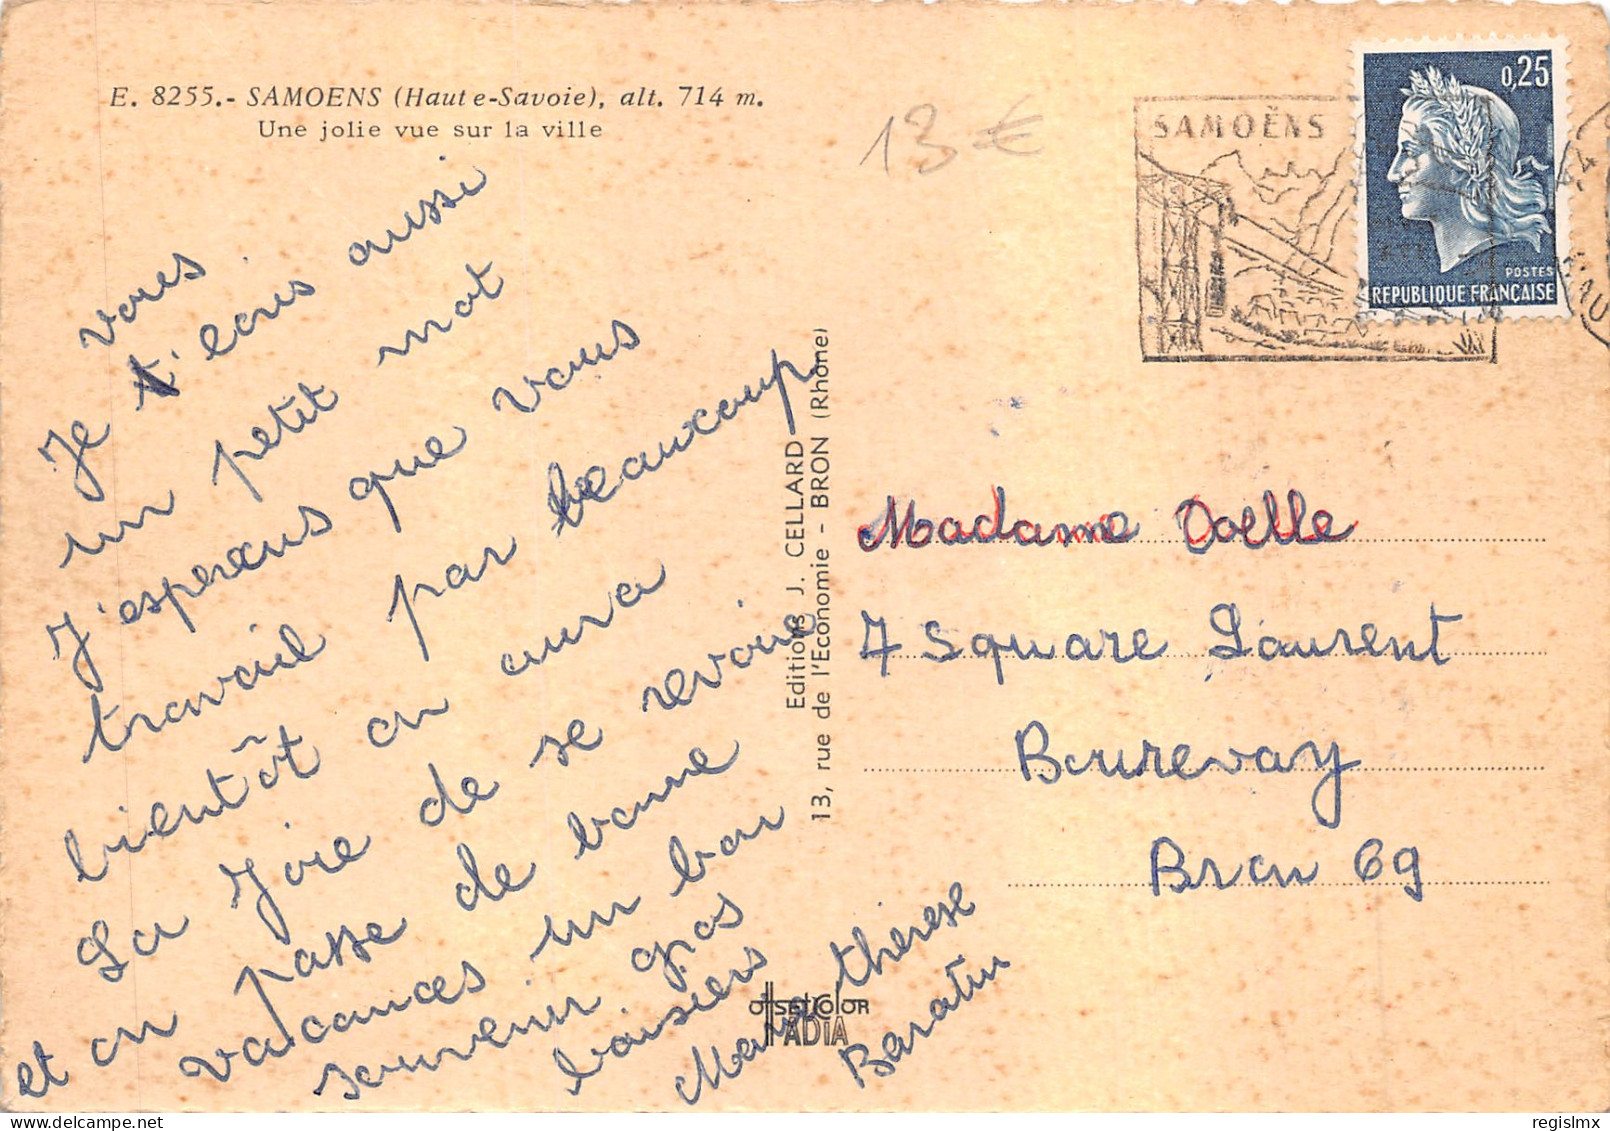 E. 8255.- SAMOENS (Haute-Savoie), alt. 714 m.
Une jolie vue sur la ville
13 €
SAMOËNS
0,25
POSTES
RÉPUBLIQUE FRANÇAISE
vous
Je t'ecris aussi
un petit mot
J'esperons que vous
travail par beaucoup
bientôt on aura
La Joie de se revoir
et on passe de bonne
vacances un bon
souvenir gros
baisiers
Marie thérèse
Baratin
Editions J. CELLARD
13, rue de l'Economie - BRON (Rhône)
offSETCOLOR
IADIA
Madame Voelle
7 Square Laurent
Bourevay
Bron 69
regislmx